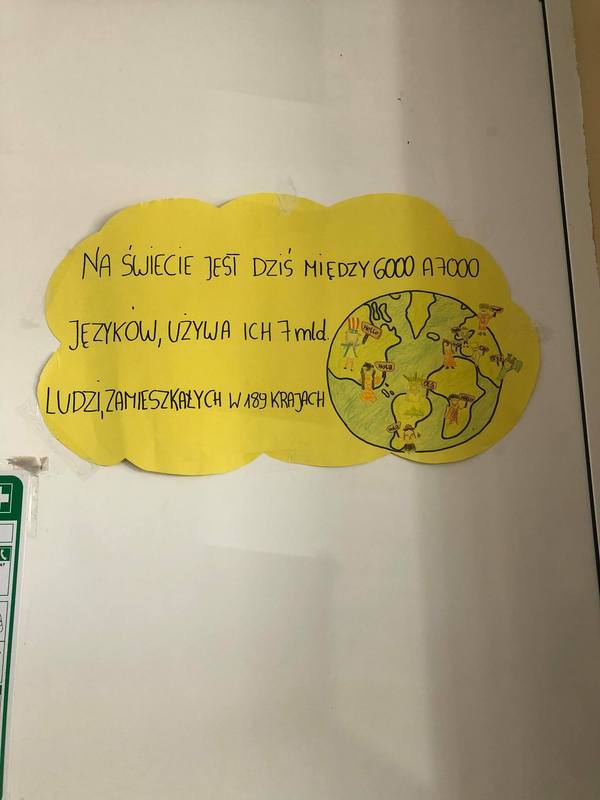 NA ŚWIECIE JEST DZIŚ MIĘDZY 6000 A 7000
JĘZYKÓW, UŻYWA ICH 7 mld.
LUDZI, ZAMIESZKAŁYCH W 189 KRAJACH
HELLO
HOLA